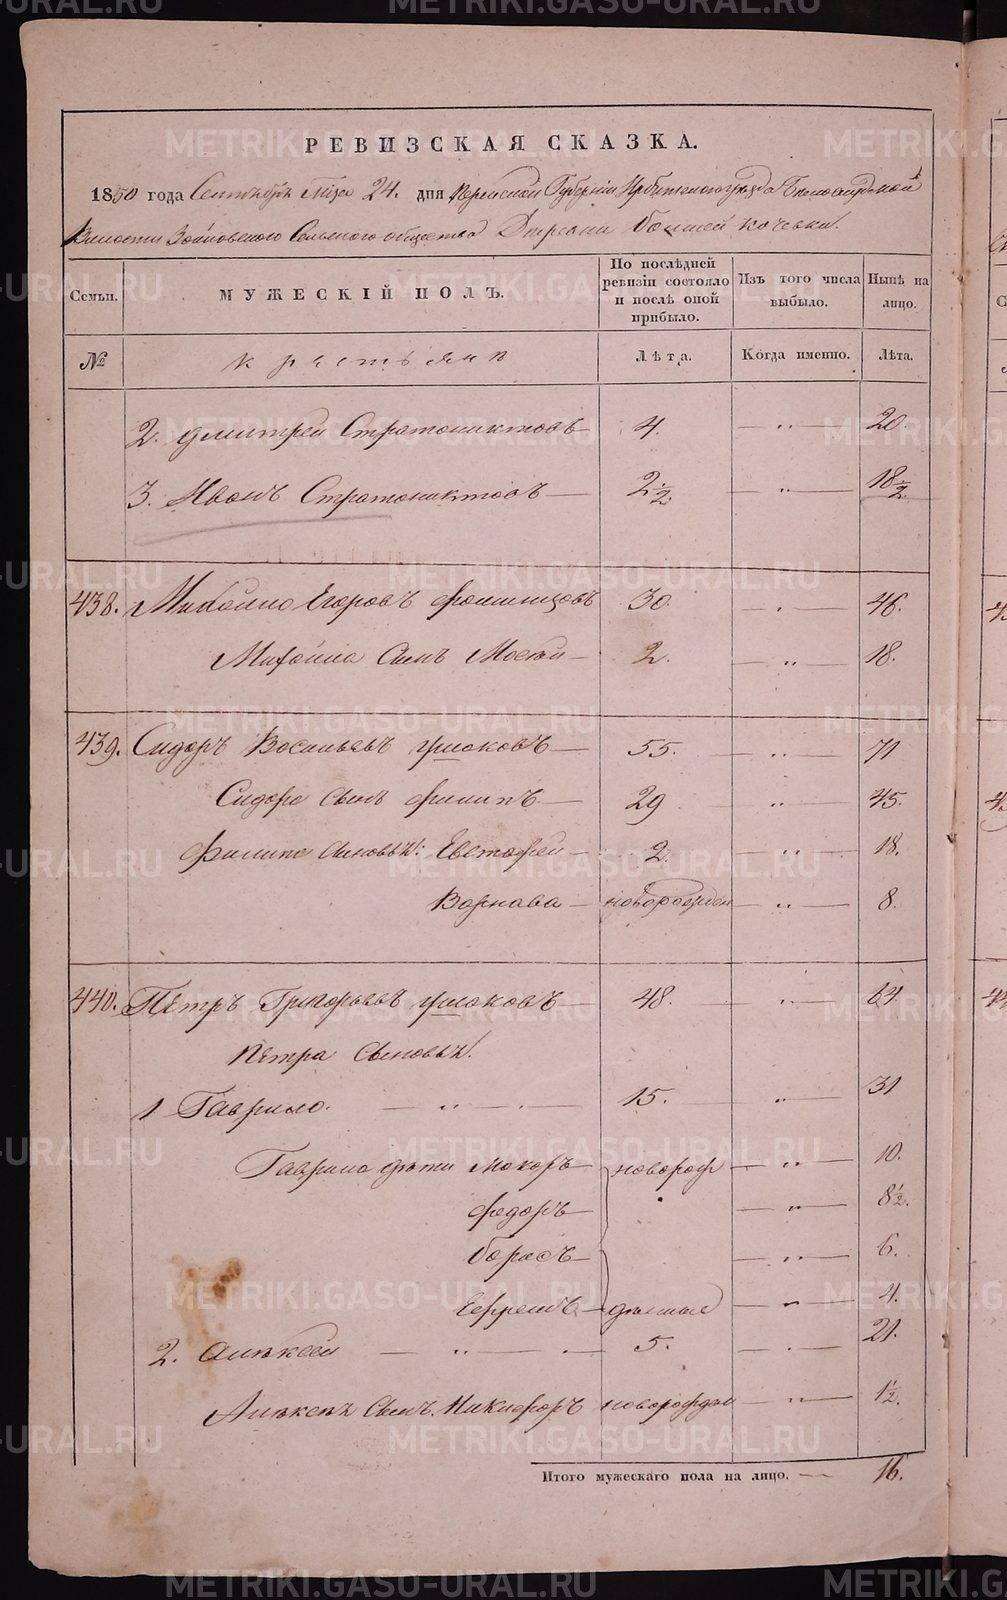 РЕВИЗСКАЯ СКАЗКА.
1850 года Сентября М̃ца 24. дня Пермской Губернiи Ирбитского уѣзда Белослудской
Волости Зайковского Сельского общества Деревни Большей Кочевки.
Семьи. МУЖЕСКIЙ ПОЛЪ. По послѣдней ревизiи состояло и послѣ оной прибыло. Изъ того числа выбыло. Нынѣ на лицо.
№ крестьяне Лѣта. Когда именно. Лѣта.
2. Дмитрей Стратониктовъ 4. — „ — 20.
3. Иванъ Стратониктовъ — 2 1/2. — „ — 18 1/2
438. Михайло Егоровъ 30. — „ — 46.
Михайла Сынъ Мосѣй — 2. — „ — 18.
439. Сидоръ Васильевъ Ушаковъ — 55. — „ — 71
Сидора Сынъ Филипъ — 29 — „ — 45.
Филипа Сыновья: Евстафей — 2. — „ — 18.
Варнава — новорожден — „ — 8.
440. Пётръ Григорьевъ Ушаковъ — 48. — „ — 64.
Пётра Сыновья.
1 Гаврило. — „ — . — 15. — „ — 31
Гаврила дѣти Макаръ — новорож — „ — 10.
Федоръ — — „ — 8 1/2.
Борисъ — — „ — 6.
Ефремъ — дённые — „ — 4.
2. Алѣксей — „ — . — 5. — . — 21.
Алѣксея Сынъ Никифоръ новорожден — „ — 1 1/2.
Итого мужескаго пола на лицо. — 16.
METRIKI.GASO-URAL.RU